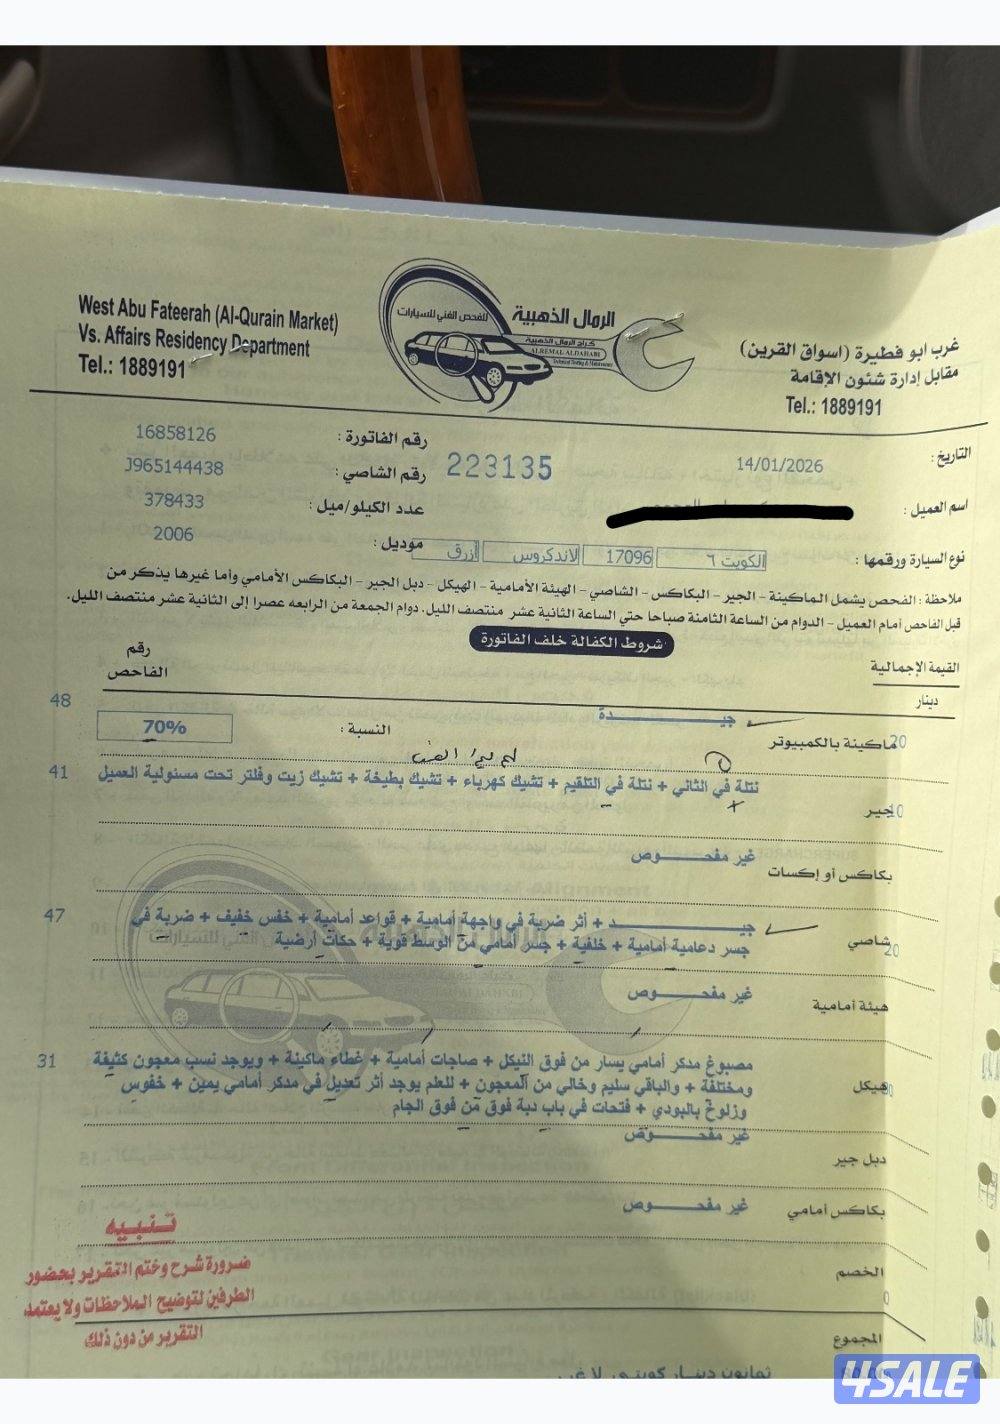 West Abu Fateerah (Al-Qurain Market)
Vs. Affairs Residency Department
Tel.: 1889191
الرمال الذهبية
للفحص الفني للسيارات
كراج الرمال الذهبية
ALREMAL ALDAHABI
Technical Testing & Maintenance
غرب ابو فطيرة (اسواق القرين)
مقابل إدارة شئون الإقامة
Tel.: 1889191
رقم الفاتورة : 16858126
التاريخ : 14/01/2026
223135
رقم الشاصي : J965144438
اسم العميل :
عدد الكيلو/ميل : 378433
نوع السيارة ورقمها : الكويت ٦ 17096 لاندكروس أزرق
موديل : 2006
ملاحظة : الفحص يشمل الماكينة - الجير - البكاكس - الشاصي - الهيئة الأمامية - الهيكل - دبل الجير - البكاكس الأمامي وأما غيرها يذكر من
قبل الفاحص أمام العميل - الدوام من الساعة الثامنة صباحا حتي الساعة الثانية عشر منتصف الليل. دوام الجمعة من الرابعه عصرا إلى الثانية عشر منتصف الليل.
شروط الكفالة خلف الفاتورة
القيمة الإجمالية
دينار
رقم الفاحص
ماكينة بالكمبيوتر 20 جيـــدة النسبة : 70% 48
جير 10 نتلة في الثاني + نتلة في التلقيم + تشيك كهرباء + تشيك بطيخة + تشيك زيت وفلتر تحت مسئولية العميل 41
بكاكس أو إكسات غير مفحـــوص
شاصي 20 جيـــد + أثر ضربة في واجهة أمامية + قواعد أمامية + خفس خفيف + ضربة في 47
جسر دعامية أمامية + خلفية + جسر أمامي من الوسط قوية + حكات أرضية
هيئة أمامية غير مفحـــوص
هيكل مصبوغ مدكر أمامي يسار من فوق النيكل + صاجات أمامية + غطاء ماكينة + ويوجد نسب معجون كثيفة 31
ومختلفة + والباقي سليم وخالي من المعجون + للعلم يوجد أثر تعديل في مدكر أمامي يمين + خفوس
وزلوخ بالبودي + فتحات في باب دبة فوق من فوق الجام
دبل جير غير مفحـــوص
بكاكس أمامي غير مفحـــوص
الخصم 0
المجموع
ثمانون دينار كويتي لا غير
تنبيه
ضرورة شرح وختم التقرير بحضور
الطرفين لتوضيح الملاحظات ولا يعتمد
التقرير من دون ذلك
4SALE